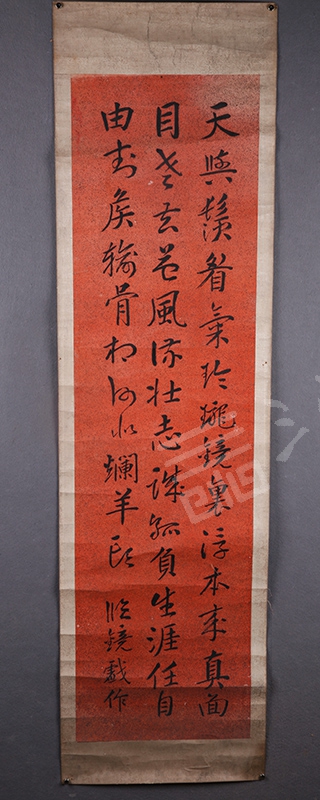 天與鬚眉氣玲瓏鏡裏浮本來真面
目老去益風流壯志誠孤負生涯任自
由封侯輸骨相何必爛羊頭 臨鏡戲作